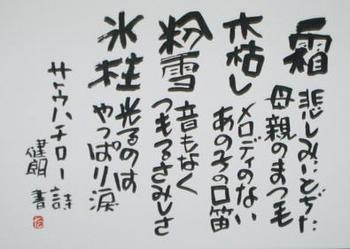 霜
悲しみにとぢた
母親のまつ毛
木枯し
メロディのない
あの子の口笛
粉雪
音もなく
つもるさみしさ
氷柱
光るのは
やっぱり涙
サトウハチロー 詩
健朗 書